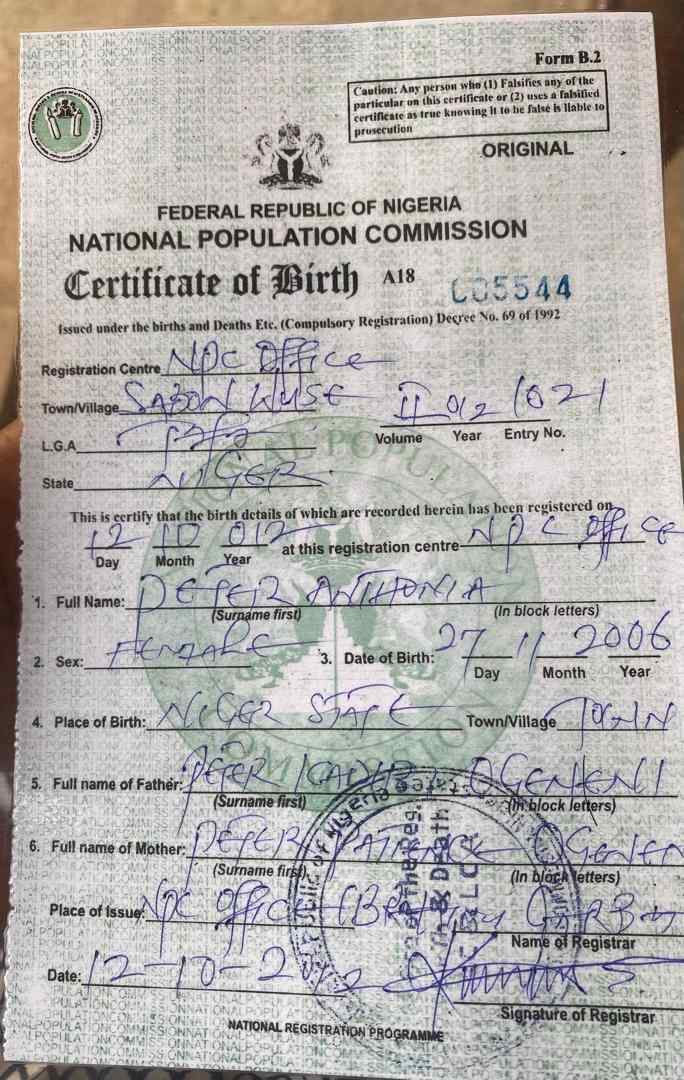 Form B.2
Caution: Any person who (1) Falsifies any of the
particular on this certificate or (2) uses a falsified
certificate as true knowing it to be false is liable to
prosecution
ORIGINAL
FEDERAL REPUBLIC OF NIGERIA
NATIONAL POPULATION COMMISSION
Certificate of Birth A18 005544
Issued under the births and Deaths Etc. (Compulsory Registration) Decree No. 69 of 1992
Registration Centre NPC Office
Town/Village SABON WUSE II 012 1021
Volume Year Entry No.
L.G.A Tafa
State NIGER
This is certify that the birth details of which are recorded herein has been registered on
12 10 012 at this registration centre NPC Office
Day Month Year
1. Full Name: PETER ANTHONIA
(Surname first) (In block letters)
2. Sex: FEMALE 3. Date of Birth: 27 11 2006
Day Month Year
4. Place of Birth: NIGER STATE Town/Village TOWN
5. Full name of Father: PETER OGENENI
(Surname first) (In block letters)
6. Full name of Mother: PETER PATIENCE OGENEN
(Surname first) (In block letters)
Place of Issue: NPC Office
Name of Registrar
Date: 12-10-2012
Signature of Registrar
NATIONAL REGISTRATION PROGRAMME